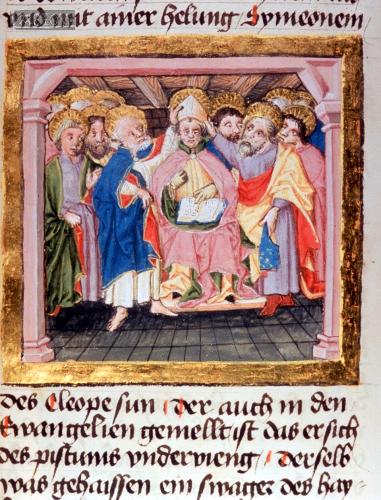 vnd mit ainer helung Symeonem
des Cleope sun Der auch in den
Ewangelien gemellt ist das er sich
des pistumis vndervieng Derselb
was gehaissen ein swager des hay